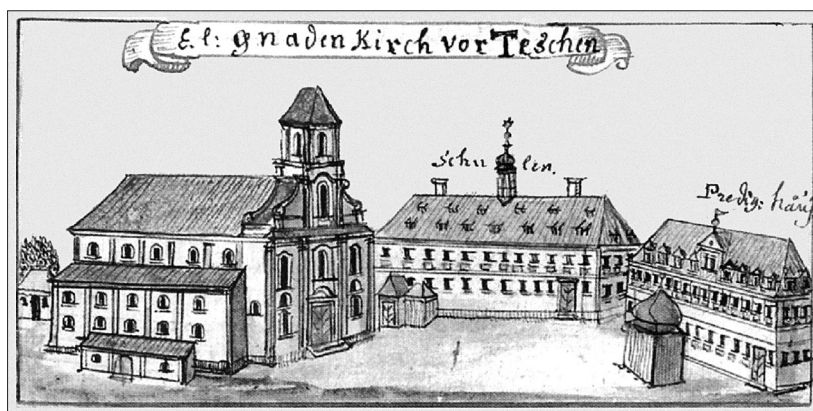 E. l: gnaden Kirch vor Teschen
Schulen.
Predig: häuß